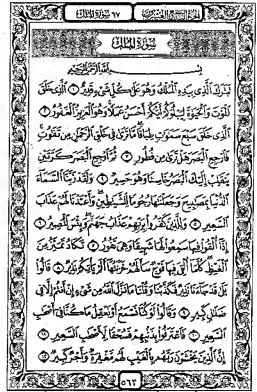 الجزء التاسع والعشرون ٦٧ سورة الملك
سورة الملك
بسم الله الرحمن الرحيم
تَبَٰرَكَ الَّذِي بِيَدِهِ الْمُلْكُ وَهُوَ عَلَىٰ كُلِّ شَيْءٍ قَدِيرٌ ١ الَّذِي خَلَقَ
الْمَوْتَ وَالْحَيَوٰةَ لِيَبْلُوَكُمْ أَيُّكُمْ أَحْسَنُ عَمَلًا وَهُوَ الْعَزِيزُ الْغَفُورُ ٢
الَّذِي خَلَقَ سَبْعَ سَمَٰوَٰتٍ طِبَاقًا مَّا تَرَىٰ فِي خَلْقِ الرَّحْمَٰنِ مِن تَفَٰوُتٍ
فَارْجِعِ الْبَصَرَ هَلْ تَرَىٰ مِن فُطُورٍ ٣ ثُمَّ ارْجِعِ الْبَصَرَ كَرَّتَيْنِ
يَنقَلِبْ إِلَيْكَ الْبَصَرُ خَاسِئًا وَهُوَ حَسِيرٌ ٤ وَلَقَدْ زَيَّنَّا السَّمَاءَ
الدُّنْيَا بِمَصَٰبِيحَ وَجَعَلْنَٰهَا رُجُومًا لِّلشَّيَٰطِينِ وَأَعْتَدْنَا لَهُمْ عَذَابَ
السَّعِيرِ ٥ وَلِلَّذِينَ كَفَرُوا بِرَبِّهِمْ عَذَابُ جَهَنَّمَ وَبِئْسَ الْمَصِيرُ ٦
إِذَا أُلْقُوا فِيهَا سَمِعُوا لَهَا شَهِيقًا وَهِيَ تَفُورُ ٧ تَكَادُ تَمَيَّزُ مِنَ
الْغَيْظِ كُلَّمَا أُلْقِيَ فِيهَا فَوْجٌ سَأَلَهُمْ خَزَنَتُهَا أَلَمْ يَأْتِكُمْ نَذِيرٌ ٨ قَالُوا
بَلَىٰ قَدْ جَاءَنَا نَذِيرٌ فَكَذَّبْنَا وَقُلْنَا مَا نَزَّلَ اللَّهُ مِن شَيْءٍ إِنْ أَنتُمْ إِلَّا فِي
ضَلَٰلٍ كَبِيرٍ ٩ وَقَالُوا لَوْ كُنَّا نَسْمَعُ أَوْ نَعْقِلُ مَا كُنَّا فِي أَصْحَٰبِ
السَّعِيرِ ١٠ فَاعْتَرَفُوا بِذَنبِهِمْ فَسُحْقًا لِّأَصْحَٰبِ السَّعِيرِ ١١
إِنَّ الَّذِينَ يَخْشَوْنَ رَبَّهُم بِالْغَيْبِ لَهُم مَّغْفِرَةٌ وَأَجْرٌ كَبِيرٌ ١٢
٥٦٢